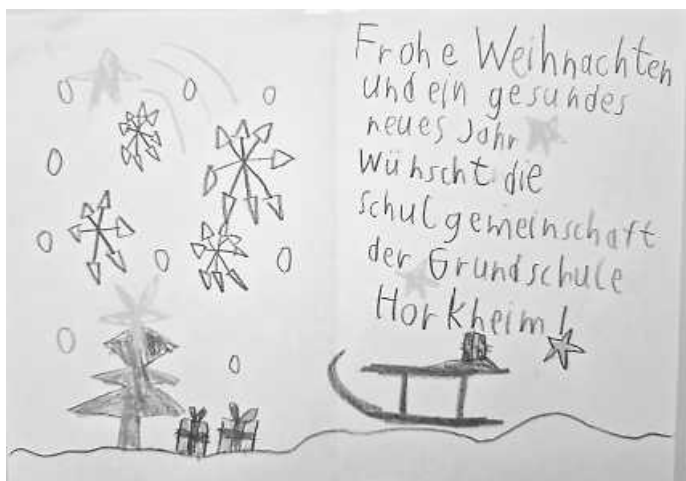 Frohe Weihnachten
und ein gesundes
neues Jahr
wünscht die
schulgemeinschaft
der Grundschule
Horkheim!